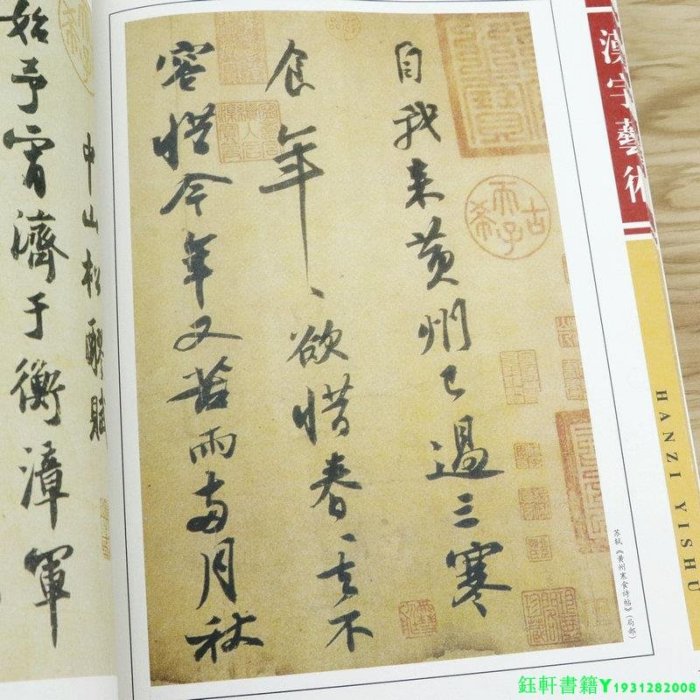 漢字藝術
HANZI YISHU
自我来黄州已過三寒
食年、欲惜春、去不
容惜今年又苦雨兩月秋
古希天子
苏轼《黄州寒食诗帖》(局部)
中山松醪賦
始予宵濟于衡漳軍
鈺軒書籍Y1931282008